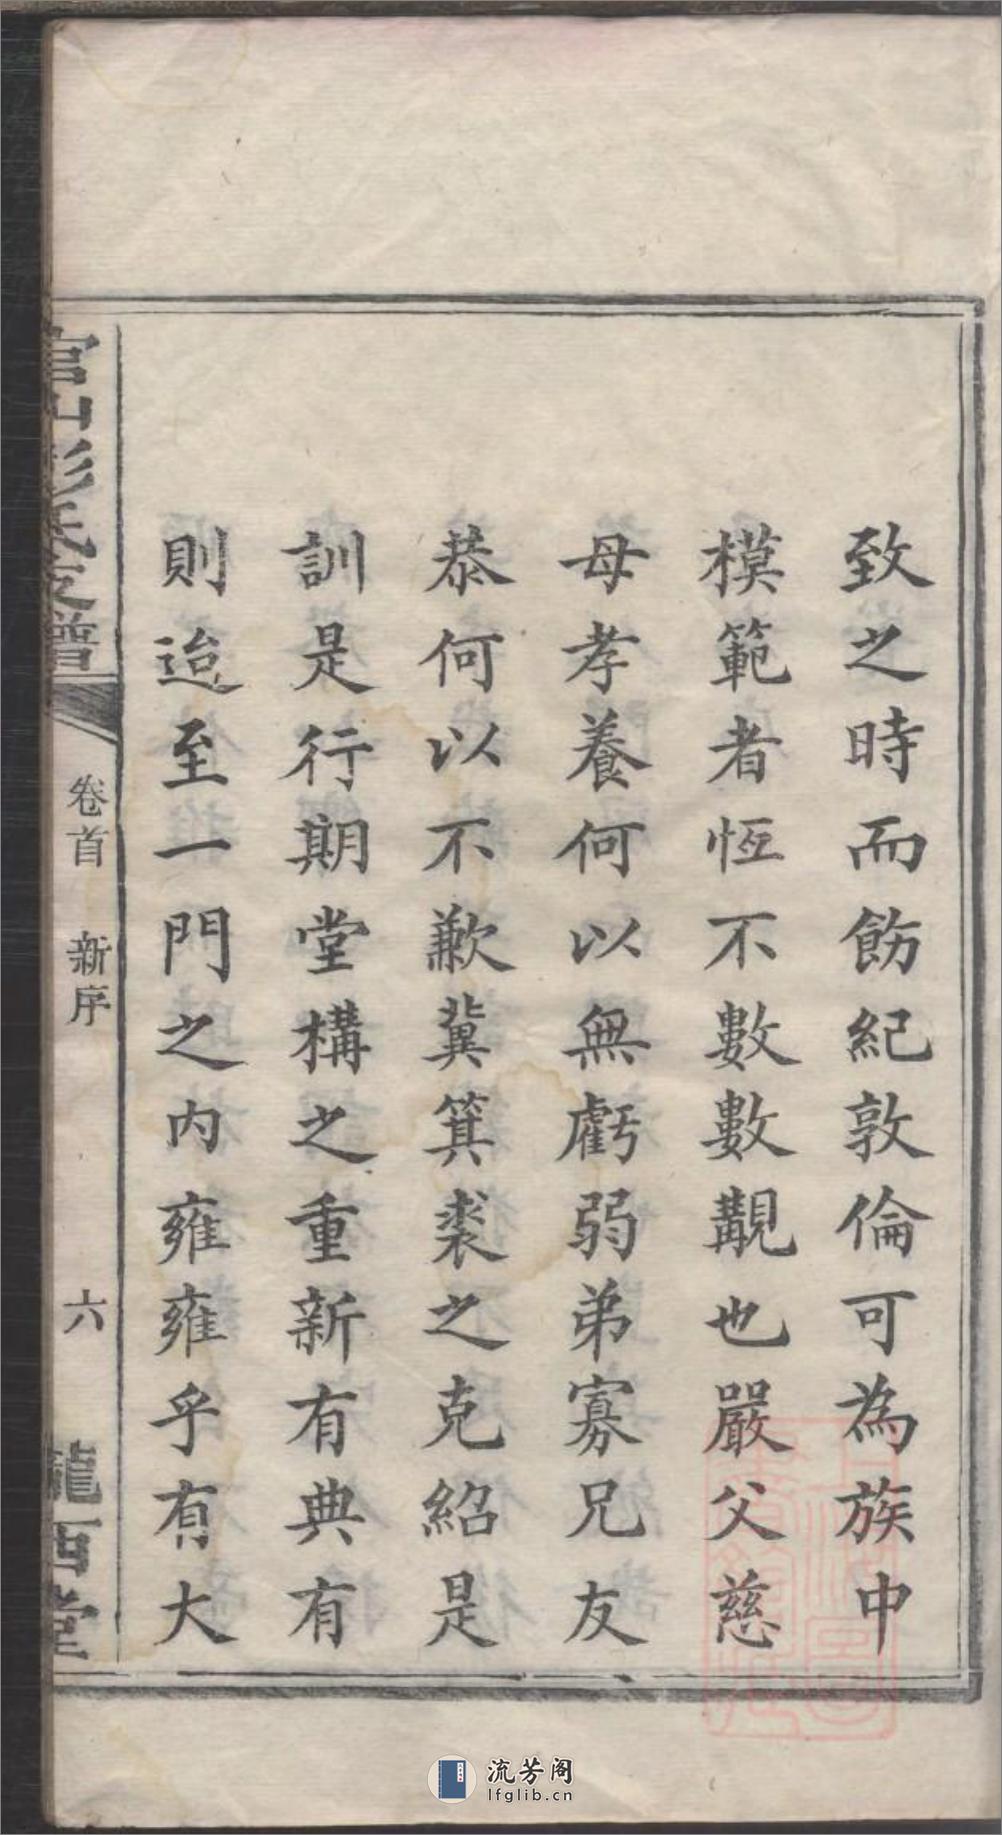 致之時而飭紀敦倫可為族中
模範者恆不數數覯也嚴父慈
母孝養何以無虧弱弟寡兄友
恭何以不歉冀箕裘之克紹是
訓是行期堂構之重新有典有
則迨至一門之内雍雍乎有大
官山彭氏支譜
卷首 新序
六
龍西堂
流芳阁
lfglib.cn